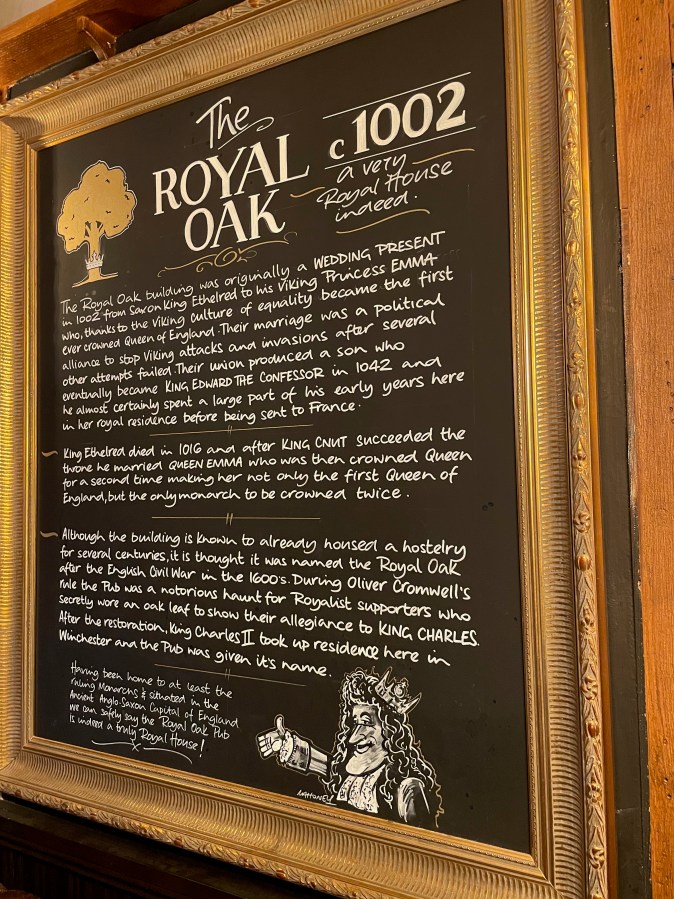 The
ROYAL
OAK
c 1002
a very
Royal House
indeed.
The Royal Oak building was originally a WEDDING PRESENT
in 1002 from Saxon King Ethelred to his Viking Princess EMMA
who, thanks to the Viking culture of equality became the first
ever crowned Queen of England. Their marriage was a political
alliance to stop Viking attacks and invasions after several
other attempts failed. Their union produced a son who
eventually became KING EDWARD THE CONFESSOR in 1042 and
he almost certainly spent a large part of his early years here
in her royal residence before being sent to France.
King Ethelred died in 1016 and after KING CNUT succeeded the
throne he married QUEEN EMMA who was then crowned Queen
for a second time making her not only the first Queen of
England, but the only monarch to be crowned twice.
Although the building is known to already housed a hostelry
for several centuries, it is thought it was named the Royal Oak
after the English Civil War in the 1600's. During Oliver Cromwell's
rule the Pub was a notorious haunt for Royalist supporters who
secretly wore an oak leaf to show their allegiance to KING CHARLES.
After the restoration, King Charles II took up residence here in
Winchester and the Pub was given it's name.
Having been home to at least the
ruling Monarchs & situated in the
Ancient Anglo-Saxon Capital of England
we can safely say the Royal Oak Pub
is indeed a truly Royal House!